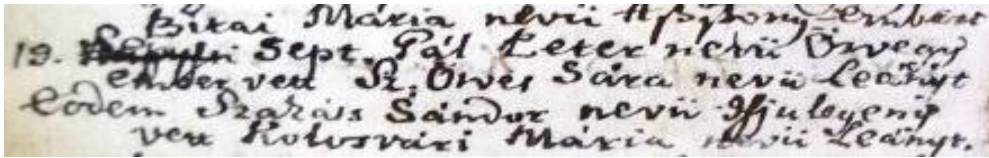 Bitai Mária nevü Aszszony Embert
19. Sept. Pál Peter nevü Özvegy
ember vett Sz. Öwes Sára nevü Leányt
Eodem Szakáts Sándor nevü Ifiu legeny
vett Kolosvári Mária nevü Leányt.